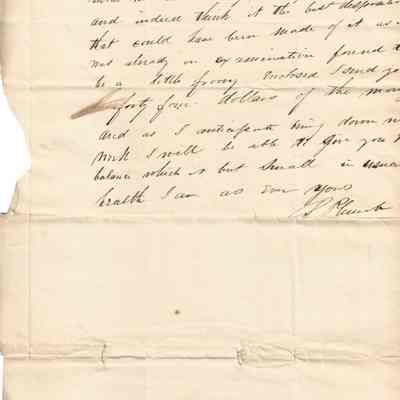 and indeed think it the best disposition
that could have been made of it as
was already on examination found t
be a little Enclosed I send yo
forty four dollars of the mon
and as I anticipate being down n
week I will be able to give you t
balance which is but small in usual
health I am as ever yours